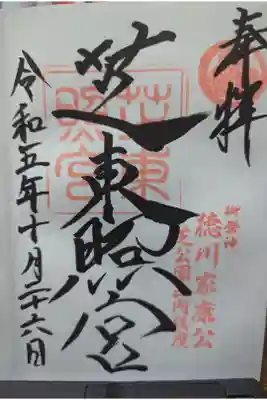 奉拝
御祭神
徳川家康公
芝公園
芝東照宮
芝東照宮
令和五年十月二十六日